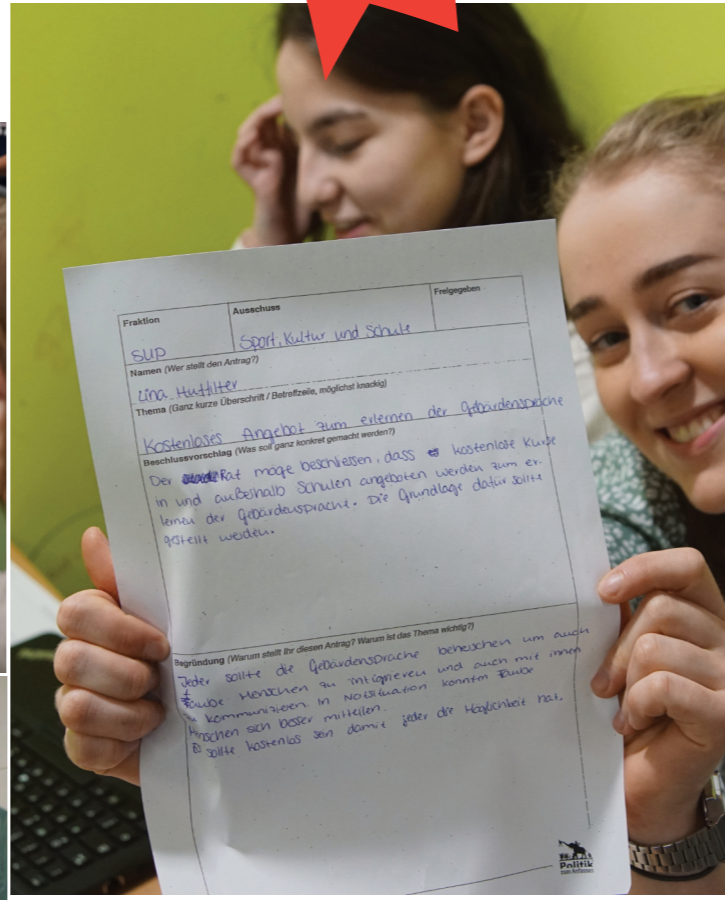 Fraktion
Ausschuss
Freigegeben
SUP
Sport, Kultur und Schule
Namen (Wer stellt den Antrag?)
Lina Hutfilter
Thema (Ganz kurze Überschrift / Betreffzeile, möglichst knackig)
Kostenloses Angebot zum erlernen der Gebärdensprache
Beschlussvorschlag (Was soll ganz konkret gemacht werden?)
Der Rat möge beschliessen, dass kostenlose Kurse
in und außeshalb Schulen angeboten werden zum er-
lernen der Gebärdensprache. Die Grundlage dafür sollte
gestellt werden.
Begründung (Warum stellt Ihr diesen Antrag? Warum ist das Thema wichtig?)
Jeder sollte die Gebärdensprache beherschen um auch
taube Menschen zu intigrieren und auch mit ihnen
zu kommunizieren. In Notsituation könnten Taube
Menschen sich besser mitteilen.
Es sollte kostenlos sein damit jeder die Möglichkeit hat.
Politik
zum Anfassen